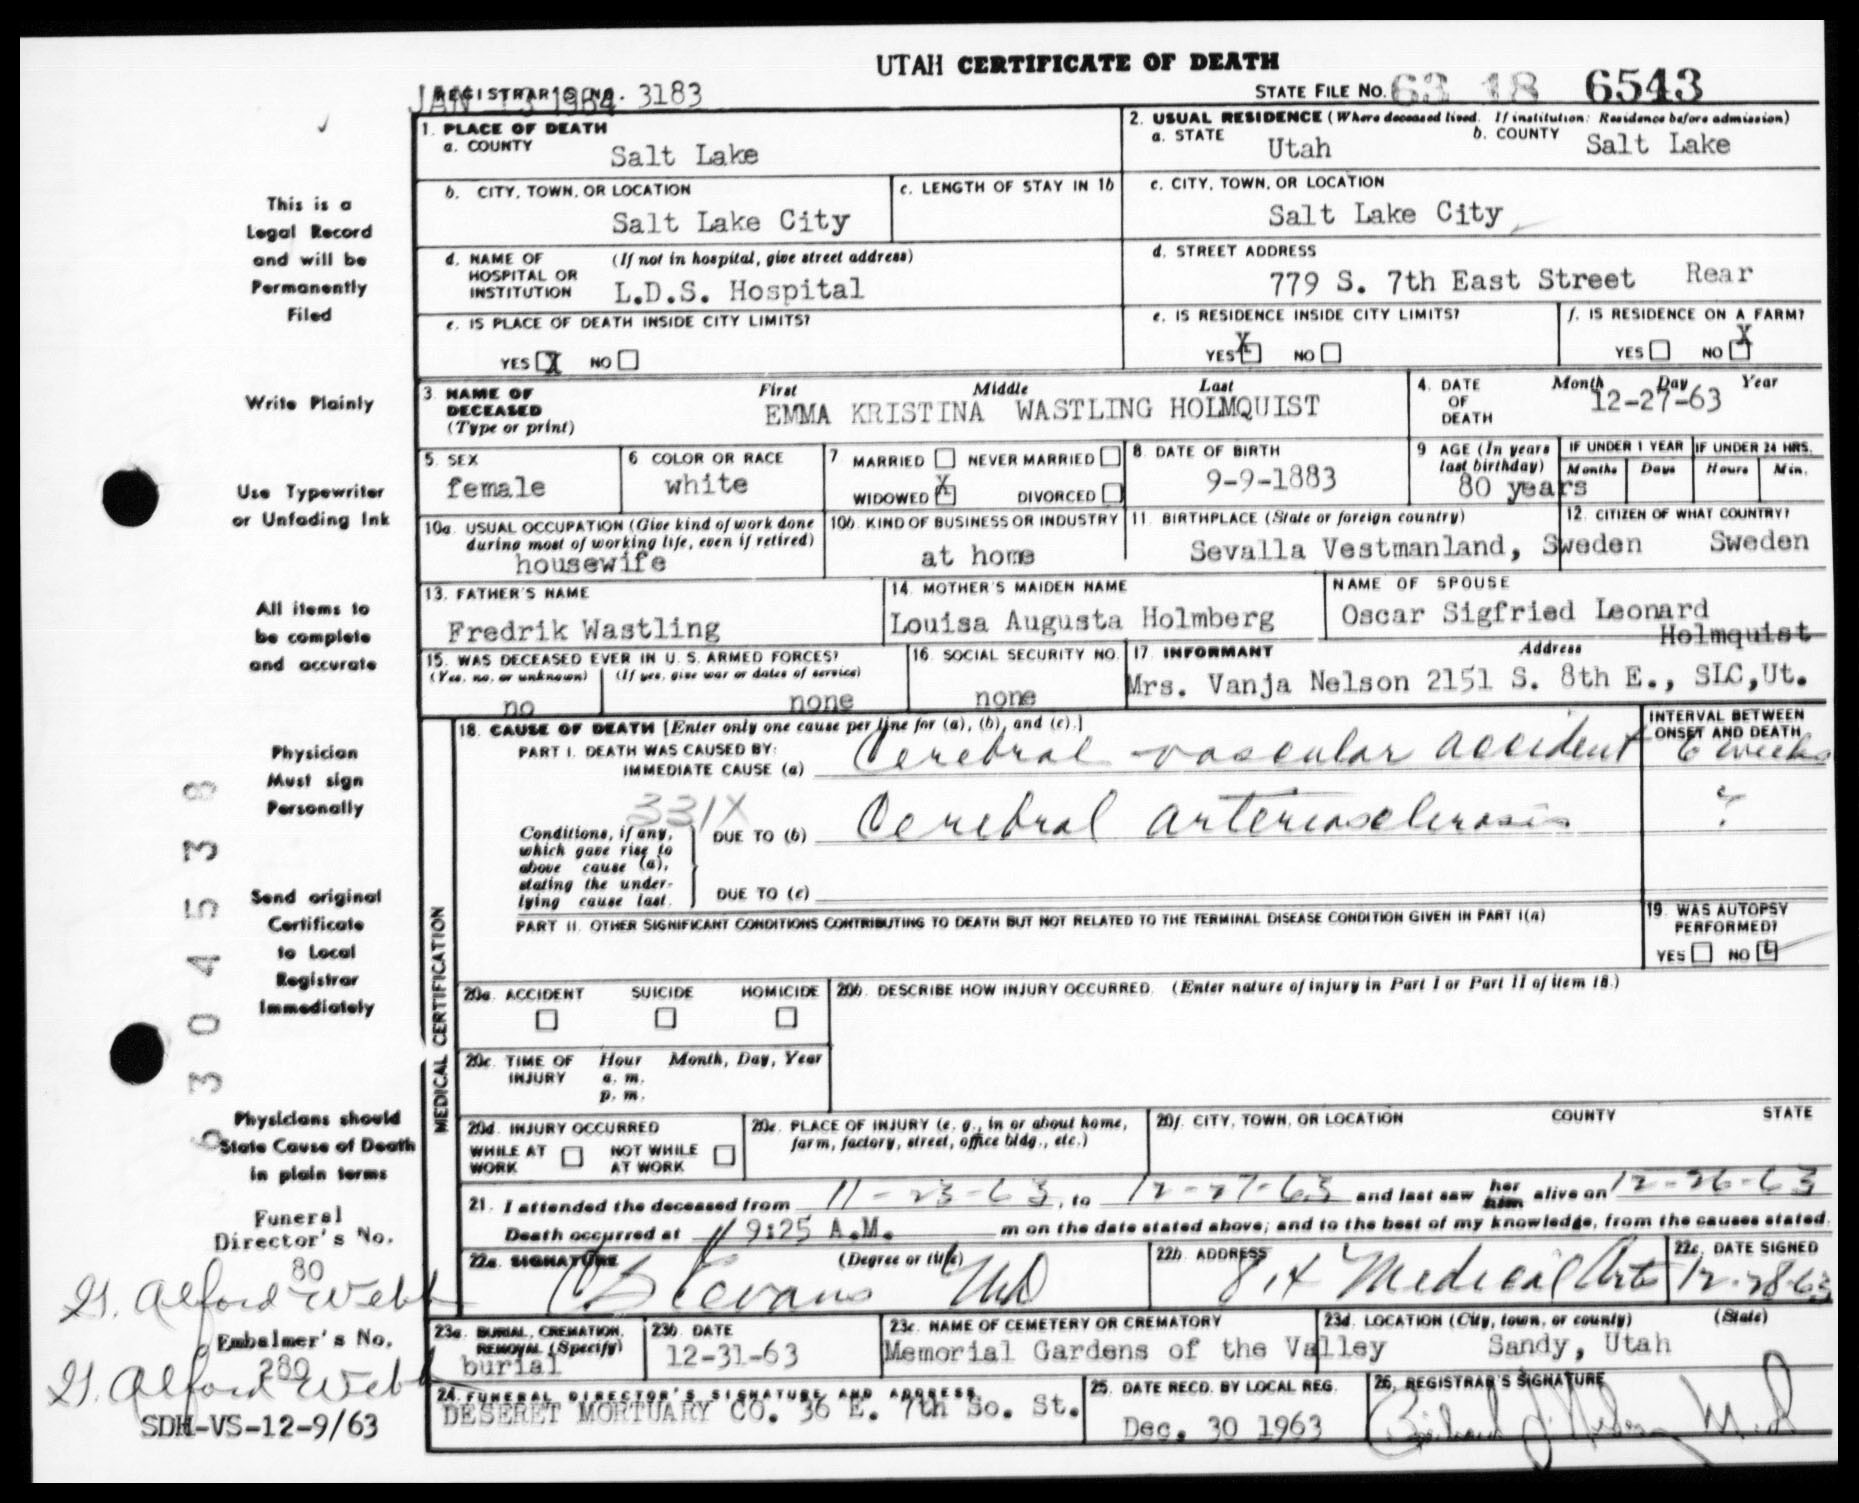 UTAH CERTIFICATE OF DEATH
JAN 13 1964
REGISTRAR'S NO. 3183
STATE FILE NO. 63 18 6543
1. PLACE OF DEATH
a. COUNTY
Salt Lake
2. USUAL RESIDENCE (Where deceased lived. If institution: Residence before admission)
a. STATE Utah b. COUNTY Salt Lake
b. CITY, TOWN, OR LOCATION
Salt Lake City
c. LENGTH OF STAY IN 1b
c. CITY, TOWN, OR LOCATION
Salt Lake City
d. NAME OF HOSPITAL OR INSTITUTION (If not in hospital, give street address)
L.D.S. Hospital
d. STREET ADDRESS
779 S. 7th East Street Rear
e. IS PLACE OF DEATH INSIDE CITY LIMITS?
YES X NO
e. IS RESIDENCE INSIDE CITY LIMITS?
YES X NO
f. IS RESIDENCE ON A FARM?
YES NO X
3. NAME OF DECEASED (Type or print)
First Middle Last
EMMA KRISTINA WASTLING HOLMQUIST
4. DATE OF DEATH Month Day Year
12-27-63
5. SEX
female
6 COLOR OR RACE
white
7 MARRIED NEVER MARRIED
WIDOWED X DIVORCED
8. DATE OF BIRTH
9-9-1883
9 AGE (In years last birthday)
80 years
IF UNDER 1 YEAR
Months Days
IF UNDER 24 HRS.
Hours Min.
10a. USUAL OCCUPATION (Give kind of work done during most of working life, even if retired)
housewife
10b. KIND OF BUSINESS OR INDUSTRY
at home
11. BIRTHPLACE (State or foreign country)
Sevalla Vestmanland, Sweden
12. CITIZEN OF WHAT COUNTRY?
Sweden
13. FATHER'S NAME
Fredrik Wastling
14. MOTHER'S MAIDEN NAME
Louisa Augusta Holmberg
NAME OF SPOUSE
Oscar Sigfried Leonard
Holmquist
15. WAS DECEASED EVER IN U. S. ARMED FORCES?
(Yes, no, or unknown) (If yes, give war or dates of service)
no none
16. SOCIAL SECURITY NO.
none
17. INFORMANT Address
Mrs. Vanja Nelson 2151 S. 8th E., SLC, Ut.
MEDICAL CERTIFICATION
18. CAUSE OF DEATH [Enter only one cause per line for (a), (b), and (c).]
INTERVAL BETWEEN ONSET AND DEATH
PART I. DEATH WAS CAUSED BY:
IMMEDIATE CAUSE (a) Cerebral vascular accident 6 weeks
331X
Conditions, if any, which gave rise to above cause (a), stating the underlying cause last.
DUE TO (b) Cerebral arteriosclerosis ?
DUE TO (c)
PART II. OTHER SIGNIFICANT CONDITIONS CONTRIBUTING TO DEATH BUT NOT RELATED TO THE TERMINAL DISEASE CONDITION GIVEN IN PART I(a)
19. WAS AUTOPSY PERFORMED?
YES NO
20a. ACCIDENT SUICIDE HOMICIDE
20b. DESCRIBE HOW INJURY OCCURRED. (Enter nature of injury in Part I or Part II of item 18.)
20c. TIME OF INJURY Hour Month, Day, Year
a. m.
p. m.
20d. INJURY OCCURRED
WHILE AT WORK NOT WHILE AT WORK
20e. PLACE OF INJURY (e. g., in or about home, farm, factory, street, office bldg., etc.)
20f. CITY, TOWN, OR LOCATION COUNTY STATE
21. I attended the deceased from 11-23-63, to 12-27-63 and last saw her him alive on 12-26-63
Death occurred at 9:25 A.M. m on the date stated above; and to the best of my knowledge, from the causes stated.
22a. SIGNATURE (Degree or title)
Evans MD
22b. ADDRESS
Medical Arts
22c. DATE SIGNED
12-28-63
23a. BURIAL, CREMATION, REMOVAL (Specify)
burial
23b. DATE
12-31-63
23c. NAME OF CEMETERY OR CREMATORY
Memorial Gardens of the Valley
23d. LOCATION (City, town, or county) (State)
Sandy, Utah
24. FUNERAL DIRECTOR'S SIGNATURE AND ADDRESS
DESERET MORTUARY CO. 36 E. 7th So. St.
25. DATE RECD. BY LOCAL REG.
Dec. 30 1963
26. REGISTRAR'S SIGNATURE
This is a
Legal Record
and will be
Permanently
Filed
Write Plainly
Use Typewriter
or Unfading Ink
All items to
be complete
and accurate
Physician
Must sign
Personally
Send original
Certificate
to Local
Registrar
Immediately
Physicians should
State Cause of Death
in plain terms
Funeral
Director's No.
80
G. Alford Webb
Embalmer's No.
280
G. Alford Webb
SDH-VS-12-9/63
6304538